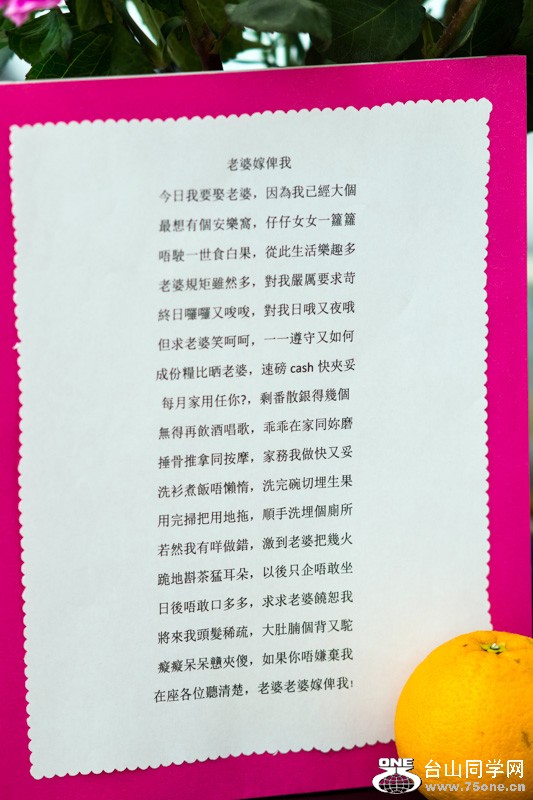 老婆嫁俾我
今日我要娶老婆，因為我已經大個
最想有個安樂窩，仔仔女女一籮籮
唔駛一世食白果，從此生活樂趣多
老婆規矩雖然多，對我嚴厲要求苛
終日囉囉又唆唆，對我日哦又夜哦
但求老婆笑呵呵，一一遵守又如何
成份糧比晒老婆，速磅 cash 快夾妥
每月家用任你?，剩番散銀得幾個
無得再飲酒唱歌，乖乖在家同妳磨
捶骨推拿同按摩，家務我做快又妥
洗衫煮飯唔懶惰，洗完碗切埋生果
用完掃把用地拖，順手洗埋個廁所
若然我有咩做錯，激到老婆把幾火
跪地斟茶猛耳朵，以後只企唔敢坐
日後唔敢口多多，求求老婆饒恕我
將來我頭髮稀疏，大肚腩個背又駝
癡癡呆呆戇夾傻，如果你唔嫌棄我
在座各位聽清楚，老婆老婆嫁俾我!
ONE 台山同学网
www.75one.cn